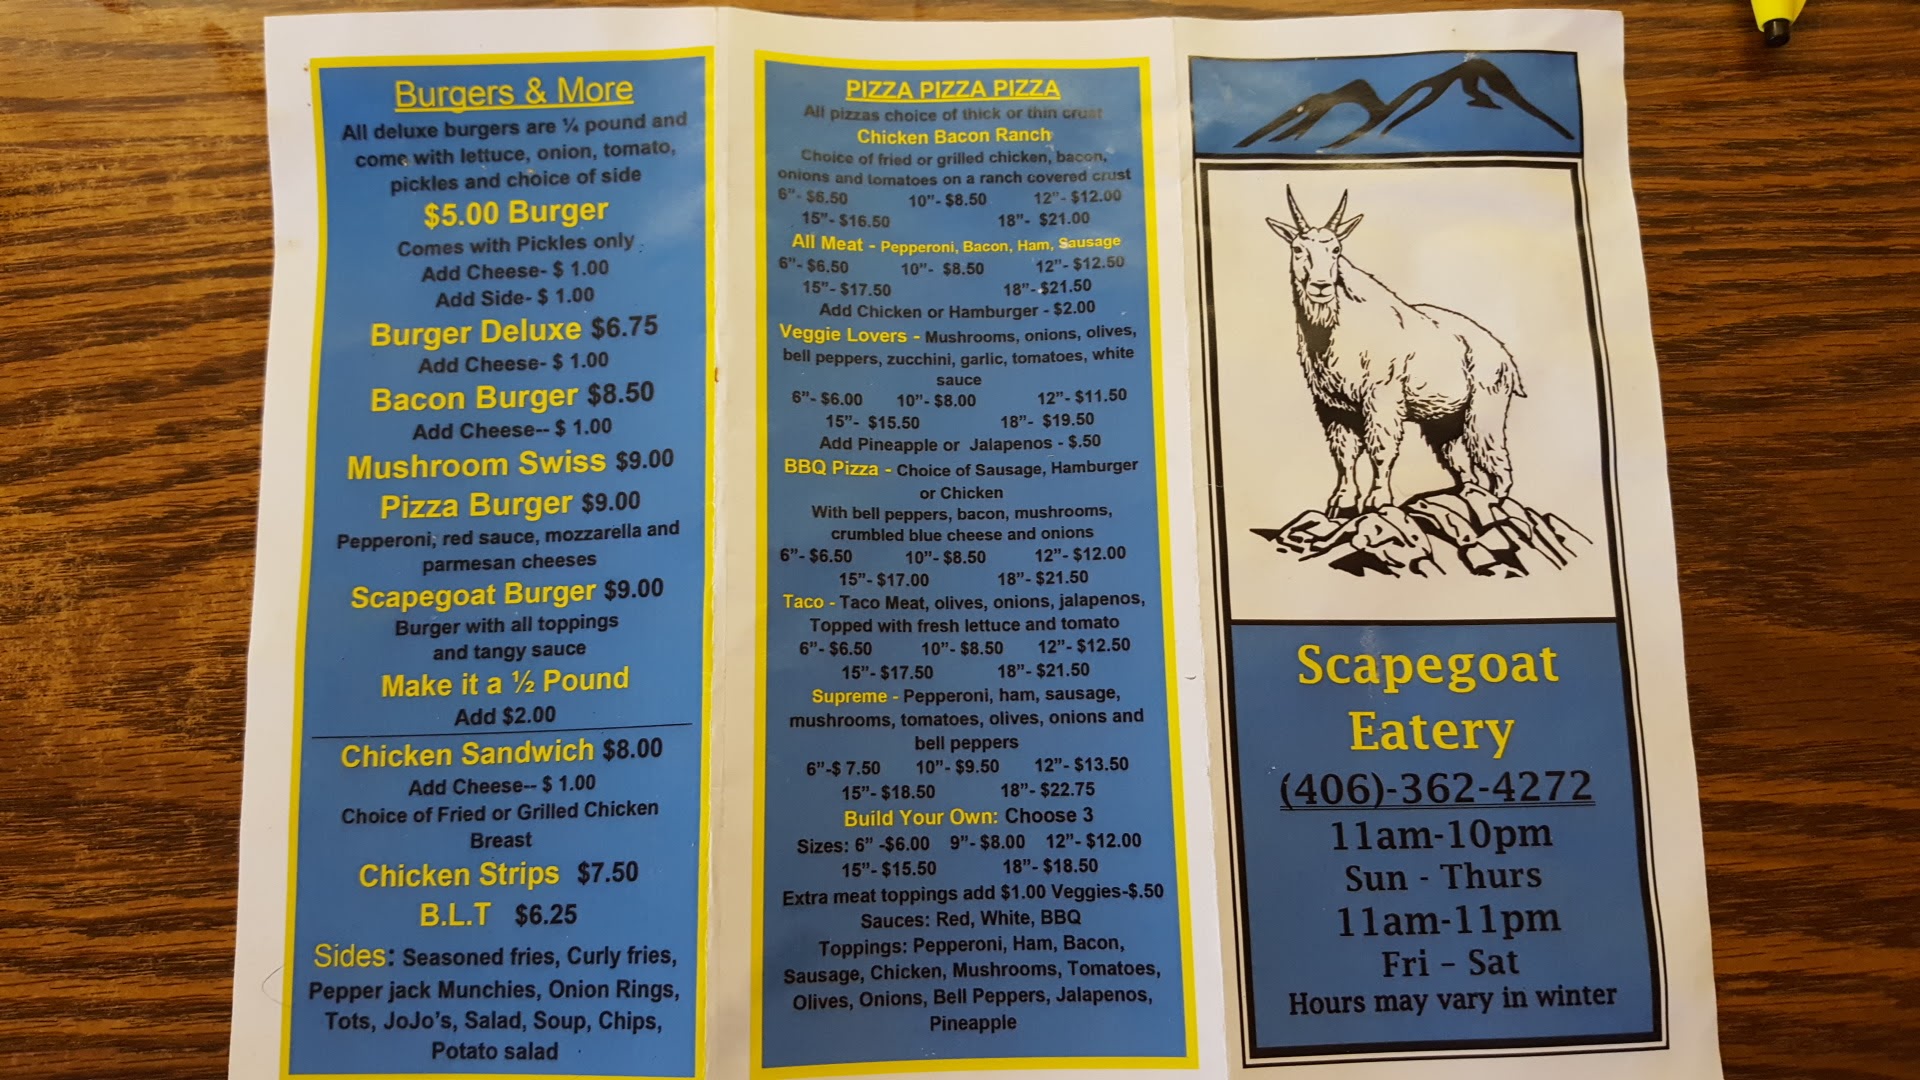 Burgers & More
All deluxe burgers are ¼ pound and
come with lettuce, onion, tomato,
pickles and choice of side
$5.00 Burger
Comes with Pickles only
Add Cheese- $ 1.00
Add Side- $ 1.00
Burger Deluxe $6.75
Add Cheese- $ 1.00
Bacon Burger $8.50
Add Cheese-- $ 1.00
Mushroom Swiss $9.00
Pizza Burger $9.00
Pepperoni, red sauce, mozzarella and
parmesan cheeses
Scapegoat Burger $9.00
Burger with all toppings
and tangy sauce
Make it a ½ Pound
Add $2.00
Chicken Sandwich $8.00
Add Cheese-- $ 1.00
Choice of Fried or Grilled Chicken
Breast
Chicken Strips $7.50
B.L.T $6.25
Sides: Seasoned fries, Curly fries,
Pepper jack Munchies, Onion Rings,
Tots, JoJo's, Salad, Soup, Chips,
Potato salad
PIZZA PIZZA PIZZA
All pizzas choice of thick or thin crust
Chicken Bacon Ranch
Choice of fried or grilled chicken, bacon,
onions and tomatoes on a ranch covered crust
6"- $6.50 10"- $8.50 12"- $12.00
15"- $16.50 18"- $21.00
All Meat - Pepperoni, Bacon, Ham, Sausage
6"- $6.50 10"- $8.50 12"- $12.50
15"- $17.50 18"- $21.50
Add Chicken or Hamburger - $2.00
Veggie Lovers - Mushrooms, onions, olives,
bell peppers, zucchini, garlic, tomatoes, white
sauce
6"- $6.00 10"- $8.00 12"- $11.50
15"- $15.50 18"- $19.50
Add Pineapple or Jalapenos - $.50
BBQ Pizza - Choice of Sausage, Hamburger
or Chicken
With bell peppers, bacon, mushrooms,
crumbled blue cheese and onions
6"- $6.50 10"- $8.50 12"- $12.00
15"- $17.00 18"- $21.50
Taco - Taco Meat, olives, onions, jalapenos,
Topped with fresh lettuce and tomato
6"- $6.50 10"- $8.50 12"- $12.50
15"- $17.50 18"- $21.50
Supreme - Pepperoni, ham, sausage,
mushrooms, tomatoes, olives, onions and
bell peppers
6"-$ 7.50 10"- $9.50 12"- $13.50
15"- $18.50 18"- $22.75
Build Your Own: Choose 3
Sizes: 6" -$6.00 9"- $8.00 12"- $12.00
15"- $15.50 18"- $18.50
Extra meat toppings add $1.00 Veggies-$.50
Sauces: Red, White, BBQ
Toppings: Pepperoni, Ham, Bacon,
Sausage, Chicken, Mushrooms, Tomatoes,
Olives, Onions, Bell Peppers, Jalapenos,
Pineapple
Scapegoat
Eatery
(406)-362-4272
11am-10pm
Sun - Thurs
11am-11pm
Fri – Sat
Hours may vary in winter